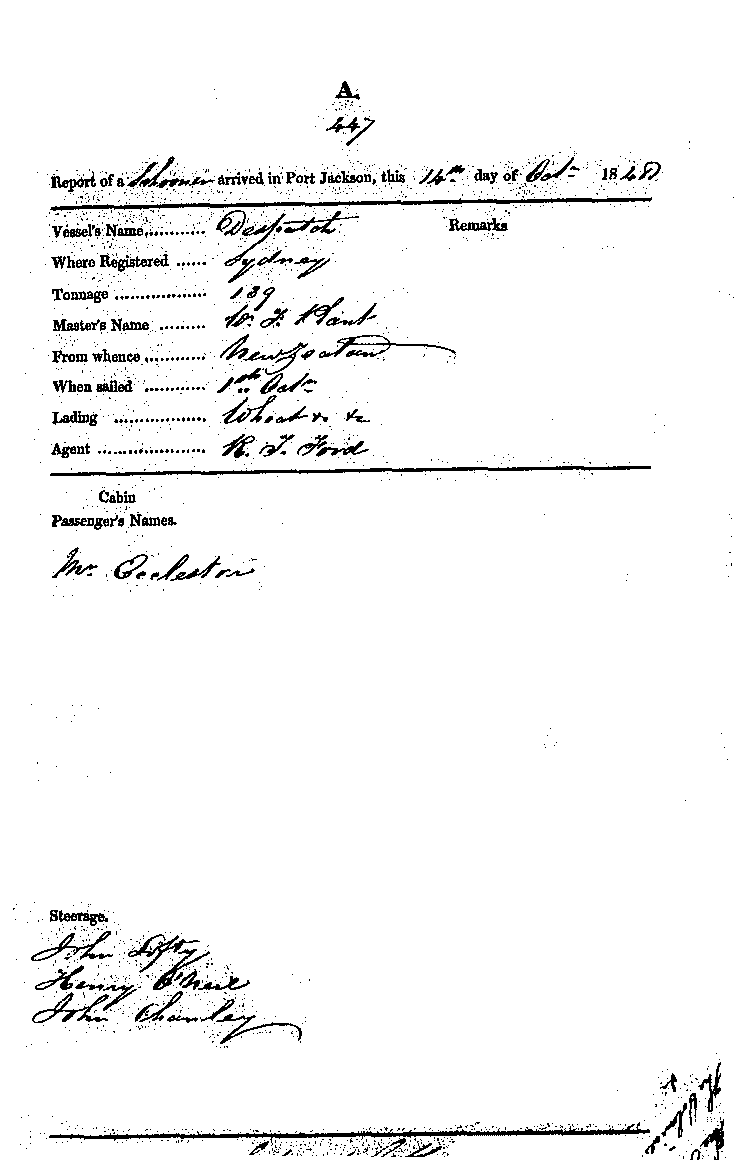 A.
447
Report of a Schooner arrived in Port Jackson, this 14th day of Octr 1848
Vessel's Name........... Despatch Remarks
Where Registered ...... Sydney
Tonnage .................. 139
Master's Name ......... W. F. Plant
From whence ........... New Zealand
When sailed ........... 1st Octr
Lading ................. Wheat &c &c
Agent ..................... R. J. Ford
Cabin
Passenger's Names.
Mr Eccleston
Steerage.
John Lofty
Henry O'Neil
John Chamley